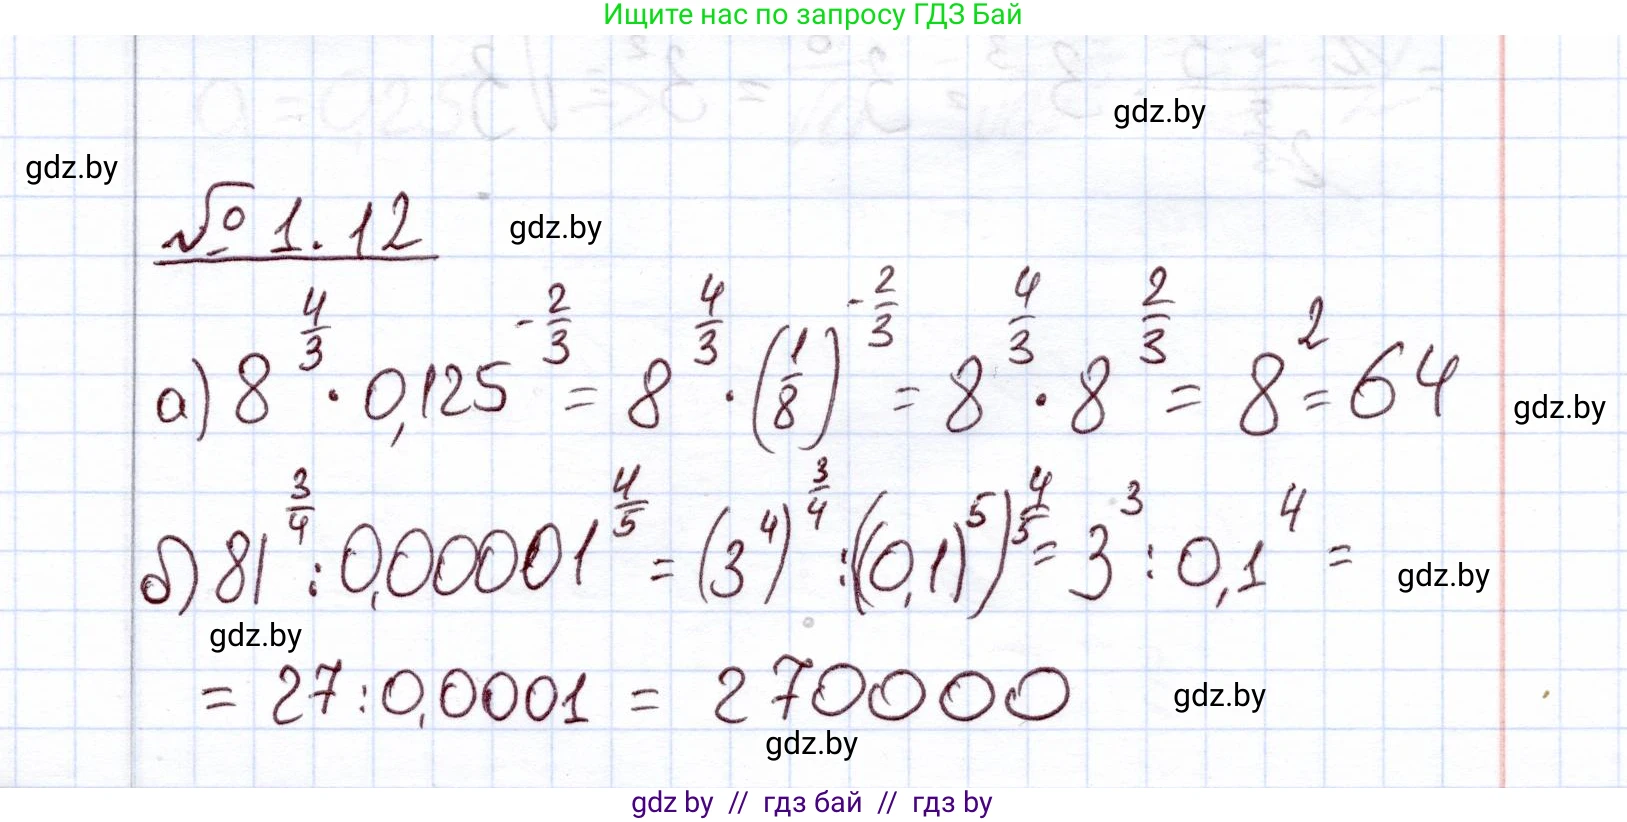 Ищите нас по запросу ГДЗ Бай
gdz.by
gdz.by
№ 1.12 gdz.by
а) 8^(4/3) · 0,125^(-2/3) = 8^(4/3) · (1/8)^(-2/3) = 8^(4/3) · 8^(2/3) = 8^2 = 64
gdz.by
б) 81^(3/4) : 0,00001^(4/5) = (3^4)^(3/4) : ((0,1)^5)^(4/5) = 3^3 : 0,1^4 =
gdz.by
gdz.by
= 27 : 0,0001 = 270000
gdz.by
gdz.by
gdz by // гдз бай // гдз by